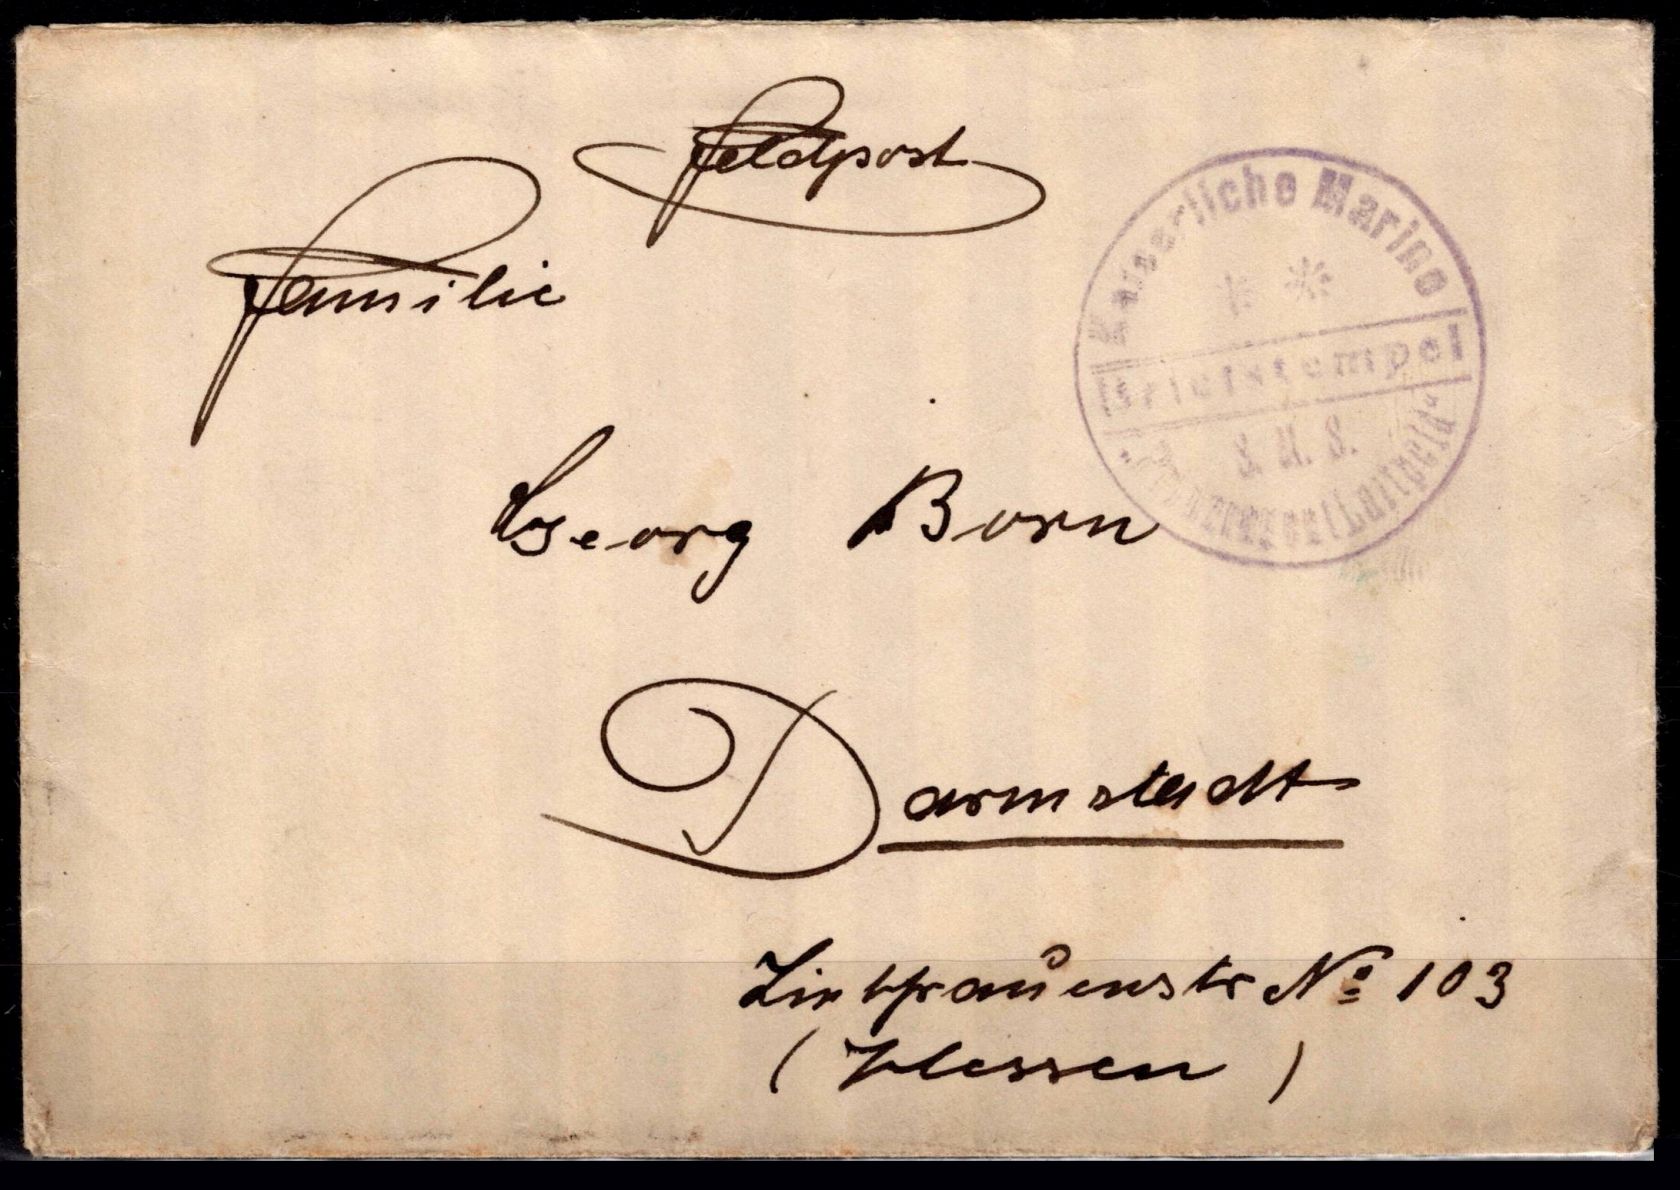 Feldpost
Familie
Georg Born
Darmstadt
Liebfrauenstr No 103
(Hessen)
Kaiserliche Marine
Briefstempel
S. M. S.
"Prinzregent Luitpold"